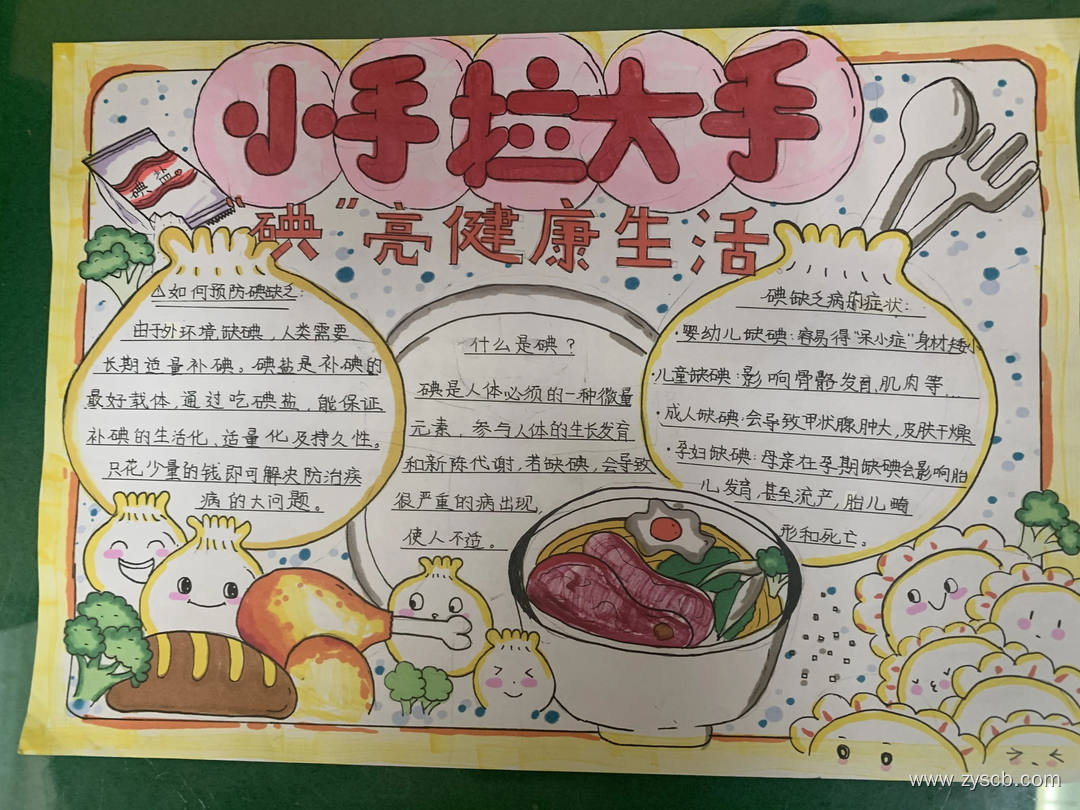 小手拦大手
"碘"亮健康生活
碘盐
如何预防碘缺乏:
由于外环境缺碘,人类需要
长期适量补碘。碘盐是补碘的
最好载体,通过吃碘盐,能保证
补碘的生活化、适量化及持久性。
只花少量的钱即可解决防治疾
病的大问题。
什么是碘?
碘是人体必须的一种微量
元素,参与人体的生长发育
和新陈代谢,若缺碘,会导致
很严重的病出现,
使人不适。
碘缺乏病的症状:
·婴幼儿缺碘:容易得"呆小症"身材矮小
·儿童缺碘:影响骨骼发育,肌肉等...
·成人缺碘:会导致甲状腺肿大,皮肤干燥
·孕妇缺碘:母亲在孕期缺碘会影响胎
儿发育,甚至流产,胎儿畸
形和死亡。
www.zyscb.com